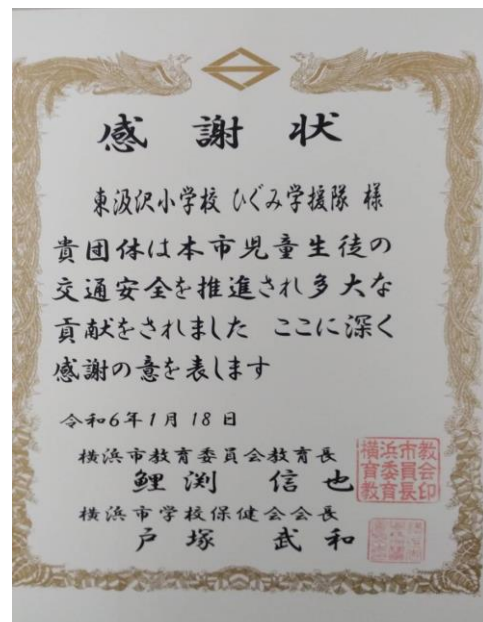 感謝状
東汲沢小学校 ひぐみ学援隊 様
貴団体は本市児童生徒の
交通安全を推進され多大な
貢献をされました ここに深く
感謝の意を表します
令和6年1月18日
横浜市教育委員会教育長
鯉渕 信也
横浜市教
育委員会
教育長印
横浜市学校保健会会長
戸塚 武和